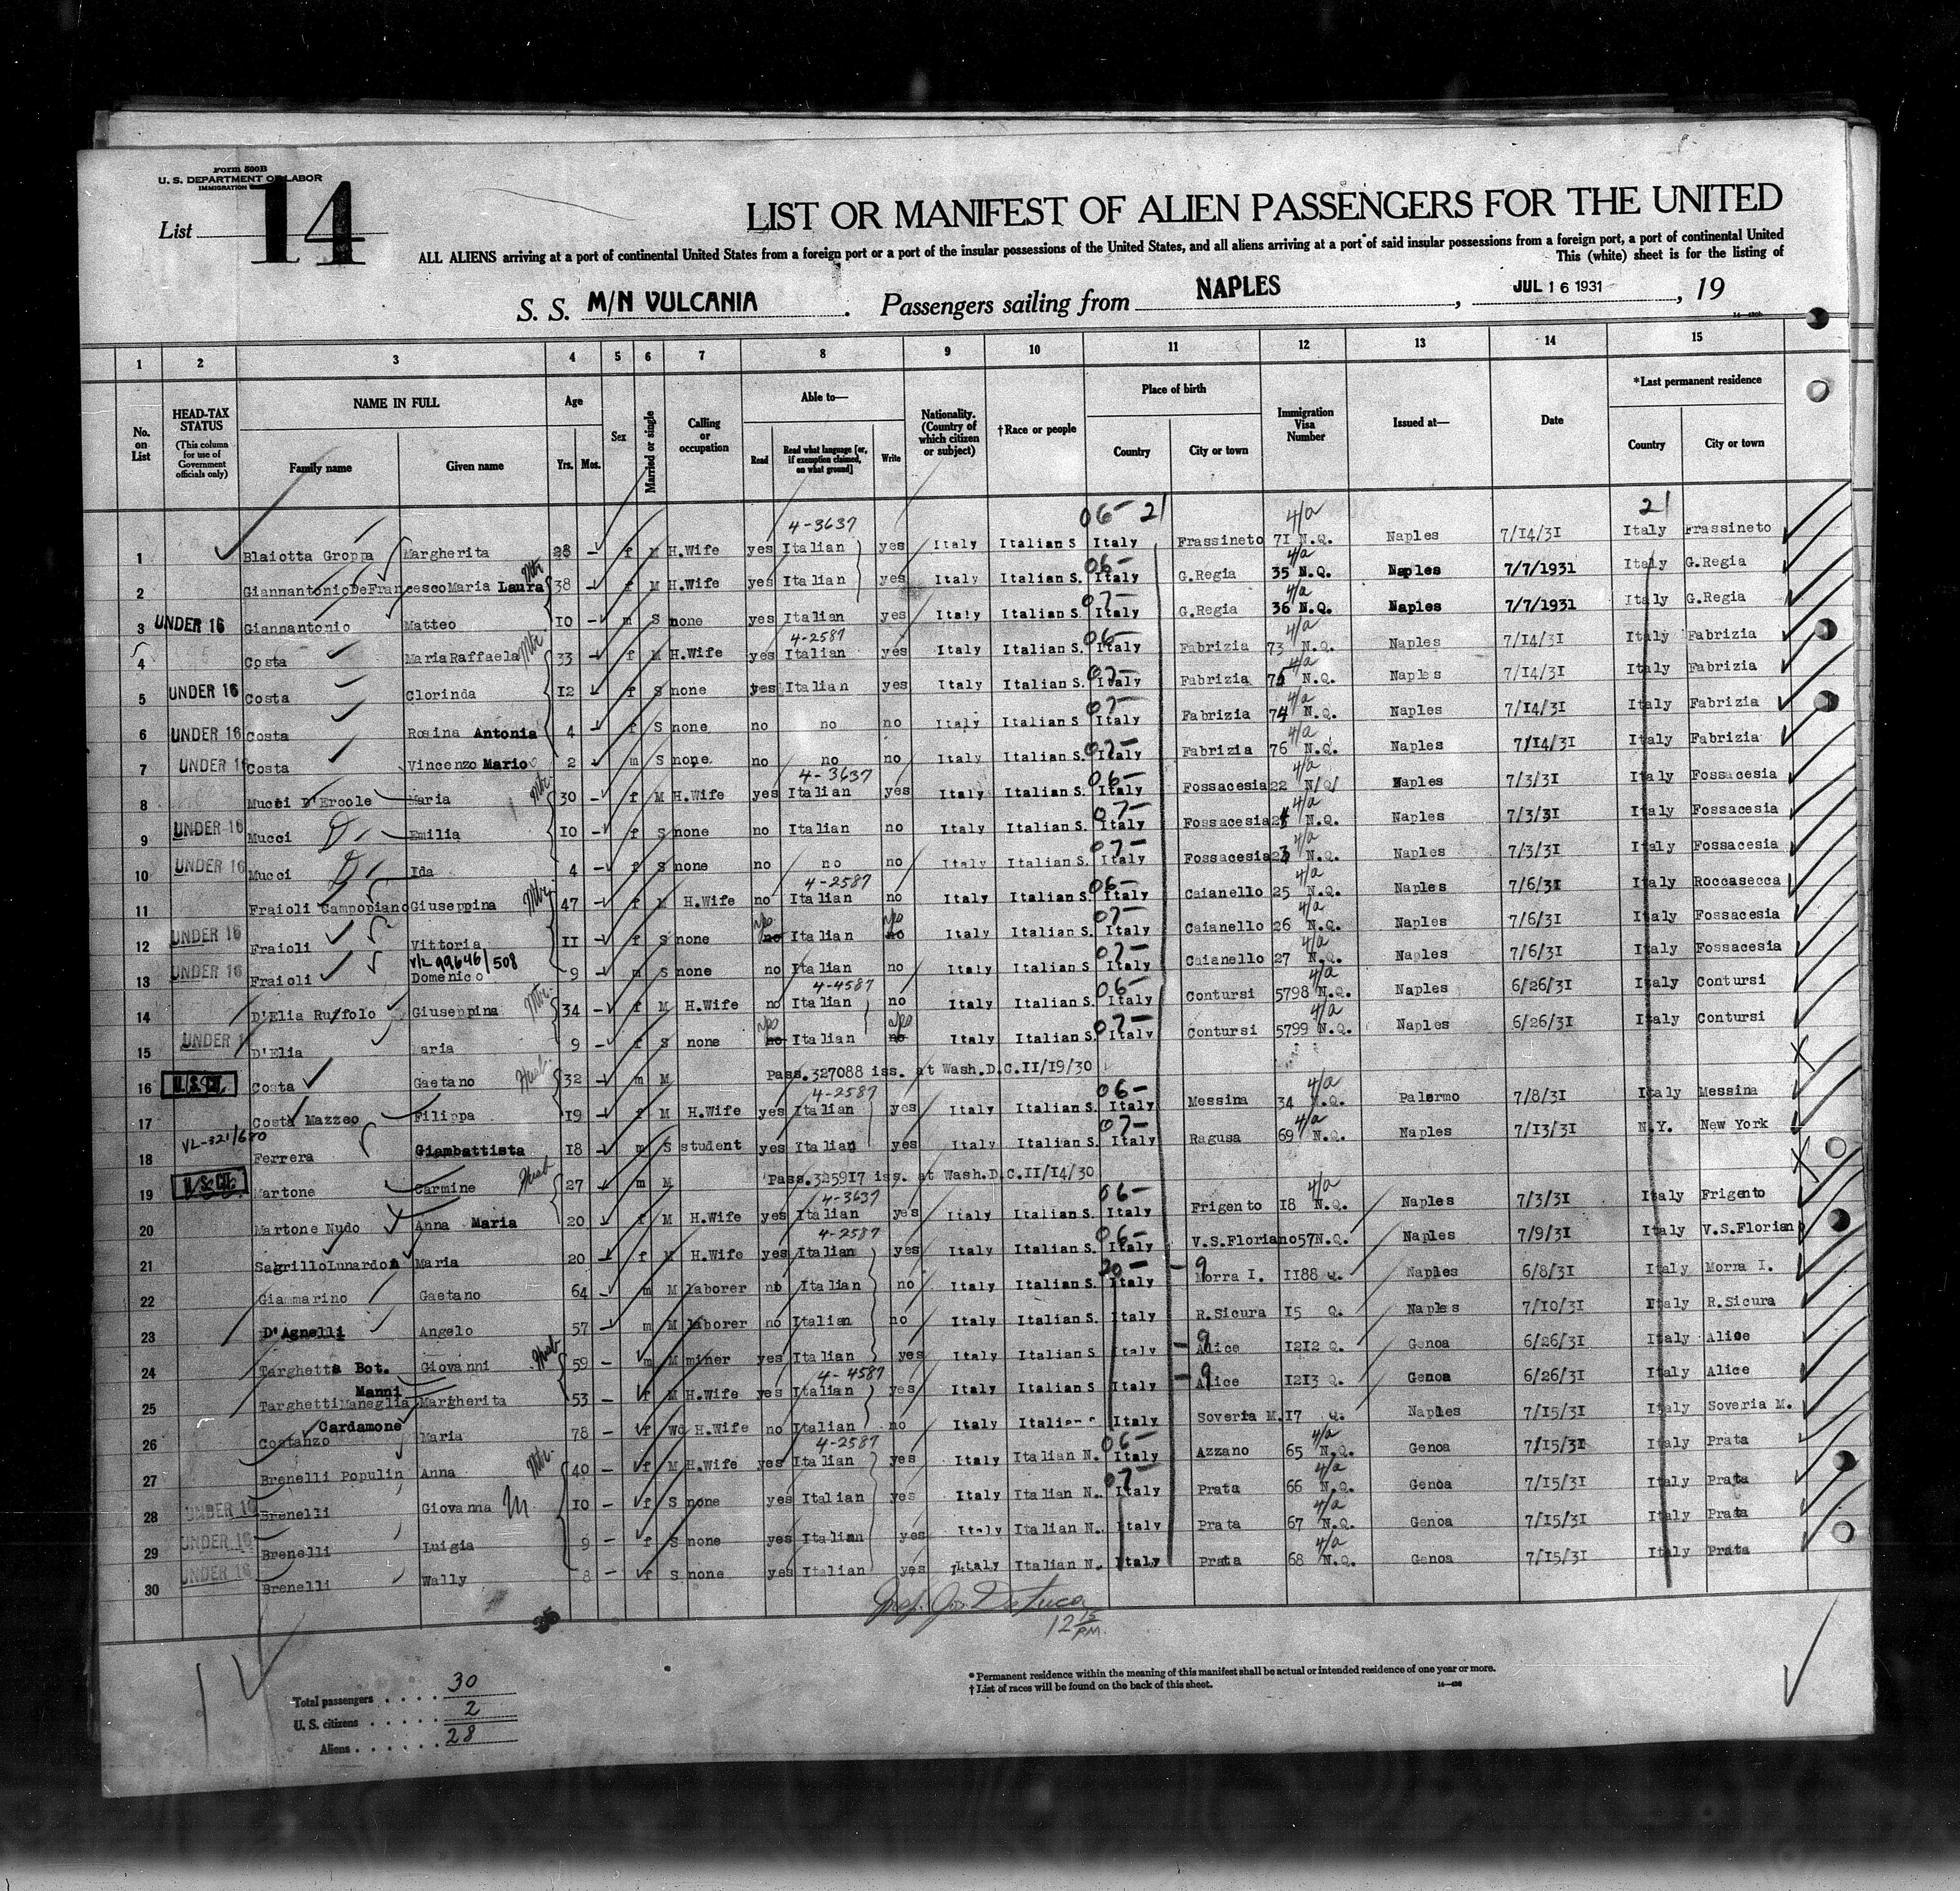 Form 500B
U. S. DEPARTMENT OF LABOR
IMMIGRATION
List 14
LIST OR MANIFEST OF ALIEN PASSENGERS FOR THE UNITED
ALL ALIENS arriving at a port of continental United States from a foreign port or a port of the insular possessions of the United States, and all aliens arriving at a port of said insular possessions from a foreign port, a port of continental United
This (white) sheet is for the listing of
S. S. M/N VULCANIA. Passengers sailing from NAPLES, JUL 16 1931, 19
1 2 3 4 5 6 7 8 9 10 11 12 13 14 15
No. on List
HEAD-TAX STATUS (This column for use of Government officials only)
NAME IN FULL
Family name Given name
Age
Yrs. Mos.
Sex
Married or single
Calling or occupation
Able to—
Read Read what language [or, if exemption claimed, on what ground] Write
Nationality. (Country of which citizen or subject)
†Race or people
Place of birth
Country City or town
Immigration Visa Number
Issued at—
Date
*Last permanent residence
Country City or town
4-3637 06- 21 4/a 21
1 Blaiotta Groppa Margherita 28 - f M H.Wife yes Italian yes Italy Italian S Italy Frassineto 71 N.Q. Naples 7/14/31 Italy Frassineto
Mtr 06- 4/a
2 Giannantonio DeFrancesco Maria Laura 38 - f M H.Wife yes Italian yes Italy Italian S. Italy G.Regia 35 N.Q. Naples 7/7/1931 Italy G.Regia
07- 4/a
3 UNDER 16 Giannantonio Matteo 10 - m S none yes Italian yes Italy Italian S. Italy G.Regia 36 N.Q. Naples 7/7/1931 Italy G.Regia
Mtr 4-2587 06- 4/a
4 Costa MariaRaffaela 33 - f M H.Wife yes Italian yes Italy Italian S. Italy Fabrizia 73 N.Q. Naples 7/14/31 Italy Fabrizia
07- 4/a
5 UNDER 16 Costa Clorinda 12 f S none yes Italian yes Italy Italian S. Italy Fabrizia N.Q. Naples 7/14/31 Italy Fabrizia
07- 4/a
6 UNDER 16 Costa Rosina Antonia 4 - f S none no no no Italy Italian S Italy Fabrizia 74 N.Q. Naples 7/14/31 Italy Fabrizia
07- 4/a
7 UNDER 16 Costa Vincenzo Mario 2 m S none no no no Italy Italian S. Italy Fabrizia 76 N.Q. Naples 7/14/31 Italy Fabrizia
Mtr 4-3637 06- 4/a
8 Mucci D'Ercole Maria 30 - f M H.Wife yes Italian yes Italy Italian S. Italy Fossacesia 22 N/Q/ Naples 7/3/31 Italy Fossacesia
07- 4/a
9 UNDER 16 Mucci Emilia 10 - f S none no Italian no Italy Italian S. Italy Fossacesia 24 N.Q. Naples 7/3/31 Italy Fossacesia
07- 4/a
10 UNDER 16 Mucci Ida 4 - f S none no no no Italy Italian S. Italy Fossacesia 23 N.Q. Naples 7/3/31 Italy Fossacesia
Mtr 4-2587 06- 4/a
11 Fraioli Campopiano Giuseppina 47 - f M H.Wife no Italian no Italy Italian S. Italy Caianello 25 N.Q. Naples 7/6/31 Italy Roccasecca
07- 4/a
12 UNDER 16 Fraioli Vittoria 11 - f S none no Italian no Italy Italian S. Italy Caianello 26 N.Q. Naples 7/6/31 Italy Fossacesia
V/L 99646/508 07- 4/a
13 UNDER 16 Fraioli Domenico 9 - m S none no Italian no Italy Italian S Italy Caianello 27 N.Q. Naples 7/6/31 Italy Fossacesia
Mtr. 4-4587 06- 4/a
14 D'Elia Ruffolo Giuseppina 34 - f M H.Wife no Italian no Italy Italian S. Italy Contursi 5798 N.Q. Naples 6/26/31 Italy Contursi
07- 4/a
15 UNDER 1 D'Elia Maria 9 - f S none no Italian no Italy Italian S. Italy Contursi 5799 N.Q. Naples 6/26/31 Italy Contursi
16 U.S.CIT. Costa Gaetano Husb. 32 m M Pass.327088 iss. at Wash.D.C.11/19/30
4-2587 06- 4/a
17 Costa Mazzeo Filippa 19 - f M H.Wife yes Italian yes Italy Italian S. Italy Messina 34 N.Q. Palermo 7/8/31 Italy Messina
07- 4/a
18 Ferrera Giambattista 18 m S student yes Italian yes Italy Italian S Italy Ragusa 69 N.Q. Naples 7/13/31 N.Y. New York
19 U.S.CIT. Martone Carmine Husb 27 m M Pass.325917 iss. at Wash.D.C.11/14/30
4-3637 06- 4/a
20 Martone Nudo Anna Maria 20 f M H.Wife yes Italian yes Italy Italian S. Italy Frigento 18 N.Q. Naples 7/3/31 Italy Frigento
4-2587 06-
21 Sagrillo Lunardon Maria 20 - f M H.Wife yes Italian yes Italy Italian S. Italy V.S.Floriano 57 N.Q. Naples 7/9/31 Italy V.S.Florian
20- 9
22 Giammarino Gaetano 64 m M laborer no Italian no Italy Italian S. Italy Morra I. 1188 Q. Naples 6/8/31 Italy Morra I.
23 D'Agnelli Angelo 57 m M laborer no Italian no Italy Italian S. Italy R.Sicura 15 Q. Naples 7/10/31 Italy R.Sicura
9
24 Targhetta Bot. Giovanni Husb 59 - m M miner yes Italian yes Italy Italian S Italy Alice 1212 Q. Genoa 6/26/31 Italy Alice
Manni 4-4587 9
25 Targhetti Maneglia Margherita 53 - f M H.Wife yes Italian yes Italy Italian S Italy Alice 1213 Q. Genoa 6/26/31 Italy Alice
Cardamone
26 Costanzo Maria 78 - f Wd H.Wife no Italian no Italy Italian S Italy Soveria M. 17 Q. Naples 7/15/31 Italy Soveria M.
Mtr. 4-2587 06- 4/a
27 Brenelli Populin Anna 40 - f M H.Wife yes Italian yes Italy Italian N. Italy Azzano 65 N.Q. Genoa 7/15/31 Italy Prata
07- 4/a
28 UNDER 16 Brenelli Giovanna 10 - f S none yes Italian yes Italy Italian N. Italy Prata 66 N.Q. Genoa 7/15/31 Italy Prata
4/a
29 UNDER 16 Brenelli Luigia 9 - f S none yes Italian yes Italy Italian N. Italy Prata 67 N.Q. Genoa 7/15/31 Italy Prata
4/a
30 UNDER 16 Brenelli Wally 8 - f S none yes Italian yes Italy Italian N. Italy Prata 68 N.Q. Genoa 7/15/31 Italy Prata
12 15 P.M.
Total passengers . . . . 30
U. S. citizens . . . . . 2
Aliens . . . . . . 28
* Permanent residence within the meaning of this manifest shall be actual or intended residence of one year or more.
† List of races will be found on the back of this sheet.